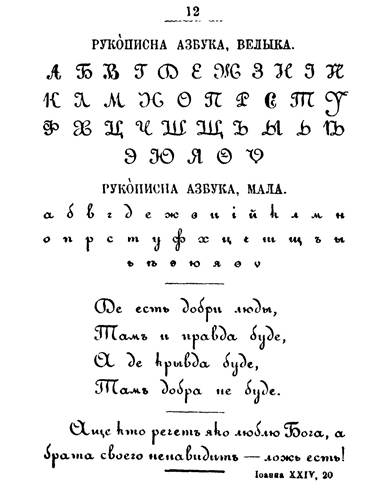 12
РУКО̀ПИСНА АЗБУКА, ВЕЛЫКА.
А Б В Г Д Е Ж З И І Й
К Л М Н О П Р С Т У
Ф Х Ц Ч Ш Щ Ъ Ы Ь Ѣ
Э Ю Я Ѳ Ѵ
РУКО̀ПИСНА АЗБУКА, МАЛА.
а б в г д е ж з и і й к л м н
о п р с т у ф х ц ч ш щ ъ ы
ь ѣ э ю я ѳ ѵ
Де есть добри люды,
Тамъ и правда буде,
А де крывда буде,
Тамъ добра не буде.
Аще кто речетъ яко люблю Бога, а
брата своего ненавидить — ложь есть!
Іоанна XXIV, 20